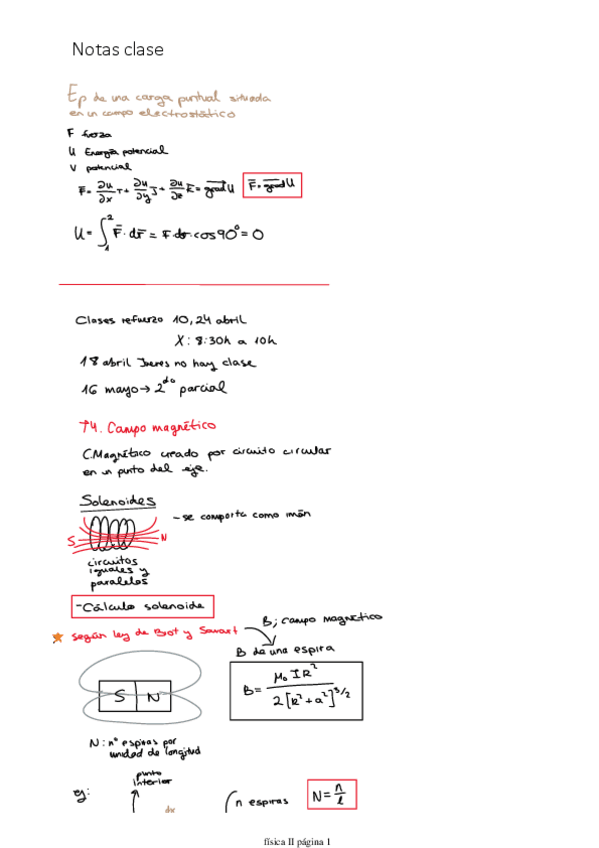 Notas clase
Ep de una carga puntual situada
en un campo electrostático
F fuerza
U Energía potencial
V potencial
F̄ = ∂u/∂x i + ∂u/∂y j + ∂u/∂z k = grad U   F̄ = grad U
U = ∫₁² F̄ · dr̄ = F · dr · cos 90° = 0
Clases refuerzo 10, 24 abril
X: 8:30h a 10h
18 abril Jueves no hay clase
16 mayo → 2do parcial
T4. Campo magnético
C.Magnético creado por circuito circular
en un punto del eje.
Solenoides
- se comporta como imán
S N
circuitos
iguales y
paralelos
- Cálculo solenoide
B; campo magnético
★ según ley de Biot y Savart
B de una espira
S N
B = μ₀ I R² / 2 [R² + a²]^3/2
N: nº espiras por
unidad de longitud
punto
interior
ej:
dx
n espiras
N = n/l
física II página 1